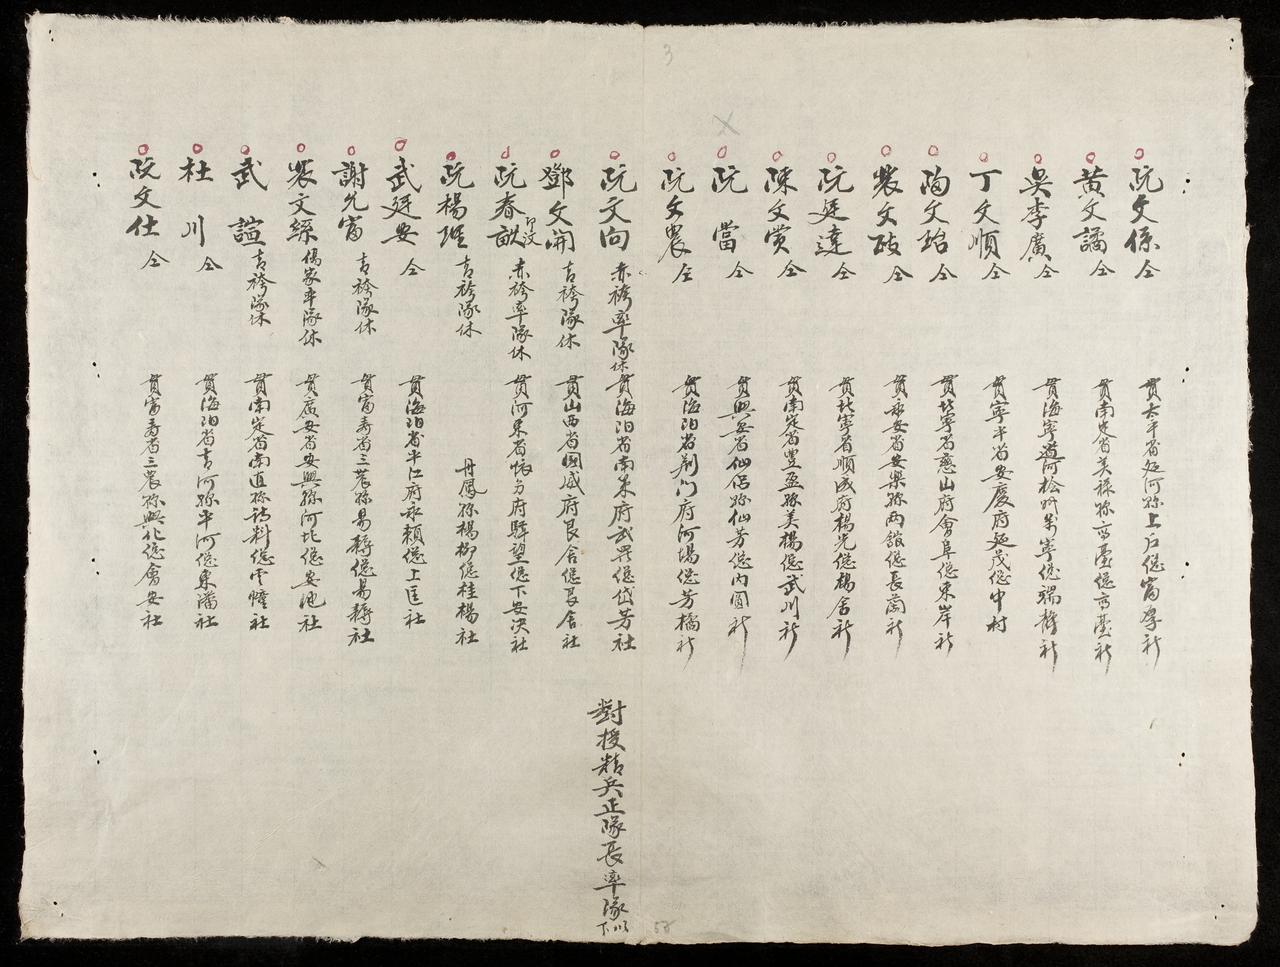 3
阮文係 仝 貫太平省延河縣上戸總富厚社
黄文譎 仝 貫南定省美祿縣高臺總高臺社
吳季廣 仝 貫海寧道河檜州萬寧總瑞 社
丁文順 仝 貫寧平省安慶府延茂總中村
陶文珆 仝 貫北寧省慈山府會阜總東岸社
裴文 仝 貫永安省安樂縣兩館總長蘭社
阮廷達 仝 貫北寧省順成府楊光總楊舍社
陳文賞 仝 貫南定省豊盈縣美楊總武川社
阮當 仝 貫興安省仙侶縣仙芳總内圓社
阮文農 仝 貫海陽省荆門府河場總芳橋社
阮文向 赤袴率隊休 貫海陽省南策府武 總岱芳社 對授精兵正隊長率隊以下
鄧文開 青袴隊休 貫山西省國威府艮舍總艮舍社
阮春 印没 赤袴率隊休 貫河東省 府驛望總下安決社
阮楊 青袴隊休 丹鳳縣楊柳總桂楊社
武廷安 仝 貫海陽省平江府永賴總上匡社
謝允富 青袴隊休 貫富壽省三農縣易耨總易耨社
裴文 傷家率隊休 貫廣安省安興縣河北總安池社
武謚 青袴隊休 貫南定省南直縣詩料總雲幢社
杜川 仝 貫海陽省青河縣平河總東潘社
阮文仕 仝 貫富壽省三農縣興化總會安社
58